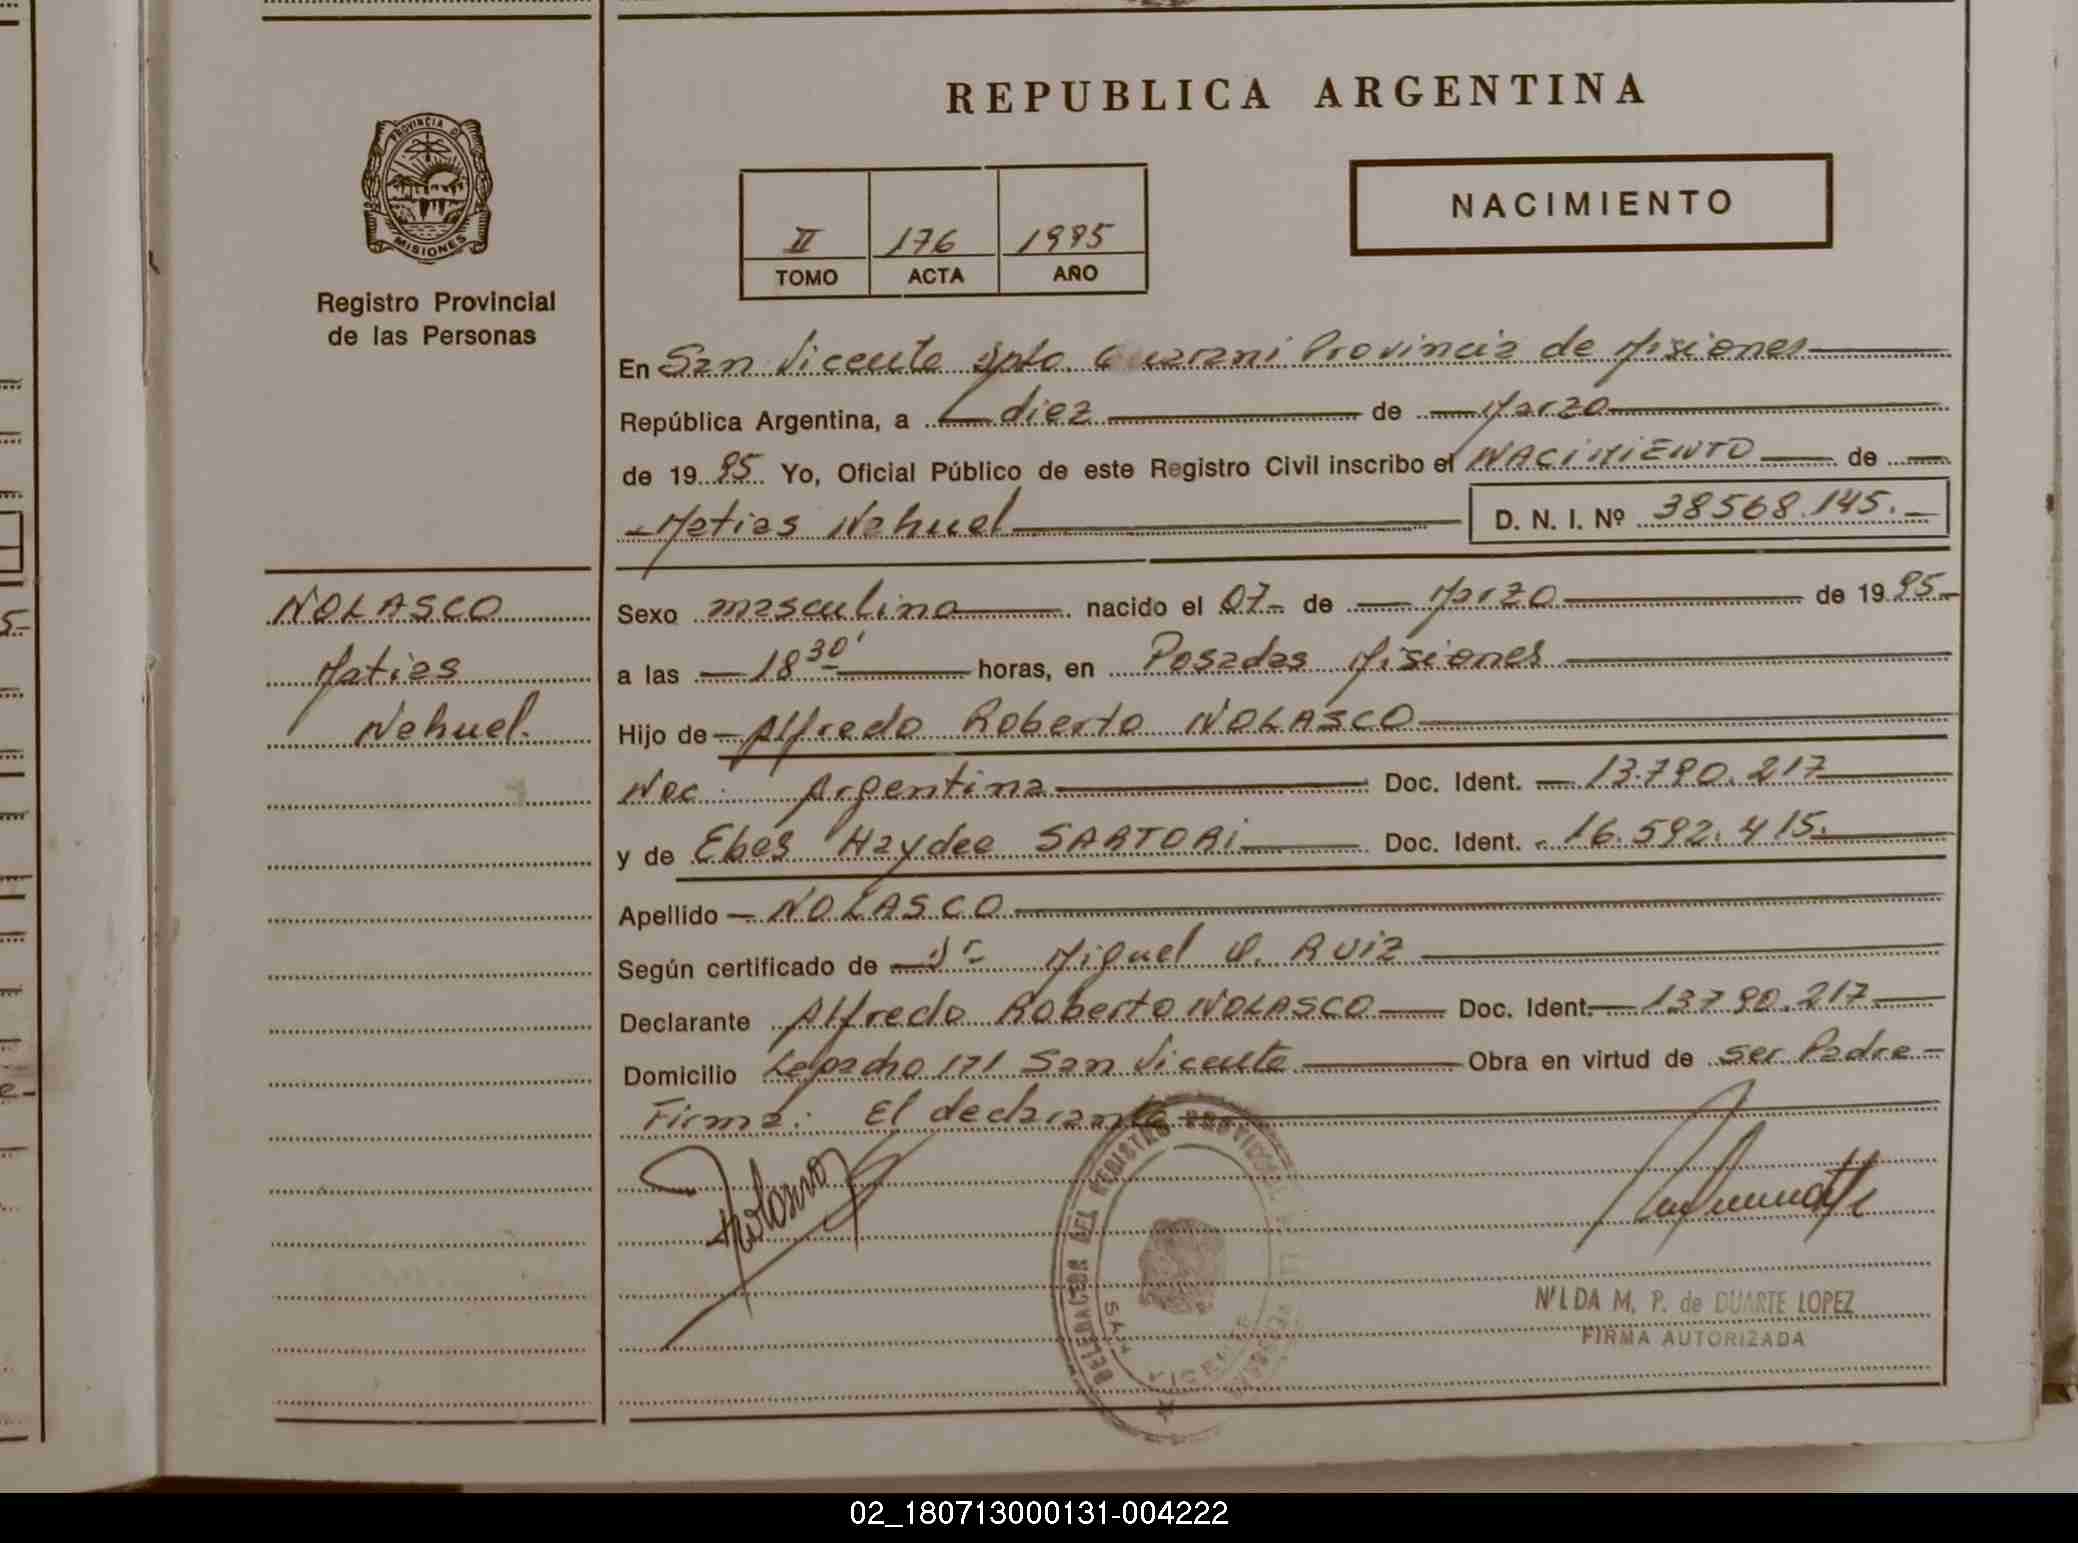 REPUBLICA ARGENTINA
PROVINCIA DE
MISIONES
Registro Provincial
de las Personas
NACIMIENTO
II 176 1995
TOMO ACTA AÑO
En San Vicente Dpto. Guarani Provincia de Misiones
República Argentina, a diez de Marzo
de 1995 Yo, Oficial Público de este Registro Civil inscribo el NACIMIENTO de
Matias Nahuel D. N. I. Nº 38568.145.
NOLASCO
Matias
Nahuel.
Sexo masculino nacido el 07 de Marzo de 1995
a las 18 30' horas, en Posadas Misiones
Hijo de Alfredo Roberto NOLASCO
Nac. Argentina Doc. Ident. 13.790.217
y de Ebes Haydee SARTORI Doc. Ident. 16.592.415.
Apellido NOLASCO
Según certificado de Dr Miguel O. RUIZ
Declarante Alfredo Roberto NOLASCO Doc. Ident. 13790.217
Domicilio Lapacho 171 San Vicente Obra en virtud de ser Padre
Firma: El declarante
Nolasco
DELEGACION DEL REGISTRO PROVINCIAL
SAN VICENTE
NILDA M. P. de DUARTE LOPEZ
FIRMA AUTORIZADA
02_180713000131-004222